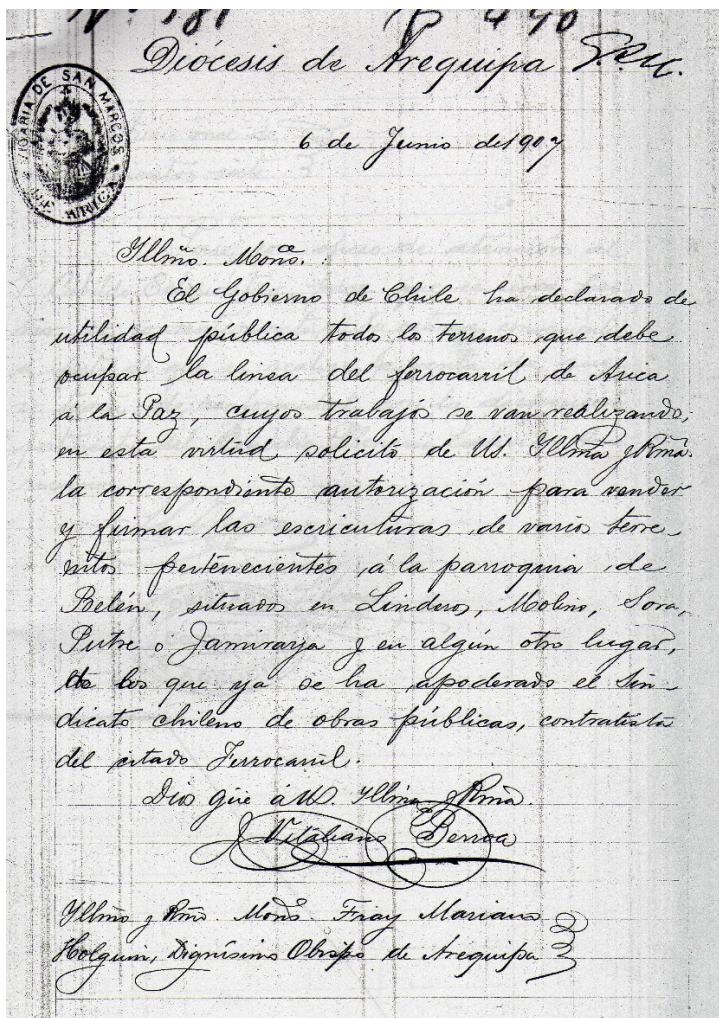 Nº 181 P 440
Diócesis de Arequipa
VICARIA DE SAN MARCOS DE ARICA
6 de Junio de 1907
Illmo. Monsr.
El Gobierno de Chile ha declarado de
utilidad pública todos los terrenos que debe
ocupar la linea del ferrocarril de Arica
á la Paz, cuyos trabajos se van realizando;
en esta virtud solicito de US. Illma y Rma.
la correspondiente autorización para vender
y firmar las escricuturas de varios terre-
nitos pertenecientes á la parroquia de
Belén, situados en Linderos, Molino, Sora,
Putre o Jamiraya y en algún otro lugar,
de los que ya se ha apoderado el Sin-
dicato chileno de obras públicas, contratista
del citado Ferrocarril.
Dios gue á US. Illma y Rma.
J Vitaliano Berroa
Illmo y Rmo. Monsr. Fray Mariano
Holguin, Dignísimo Obispo de Arequipa